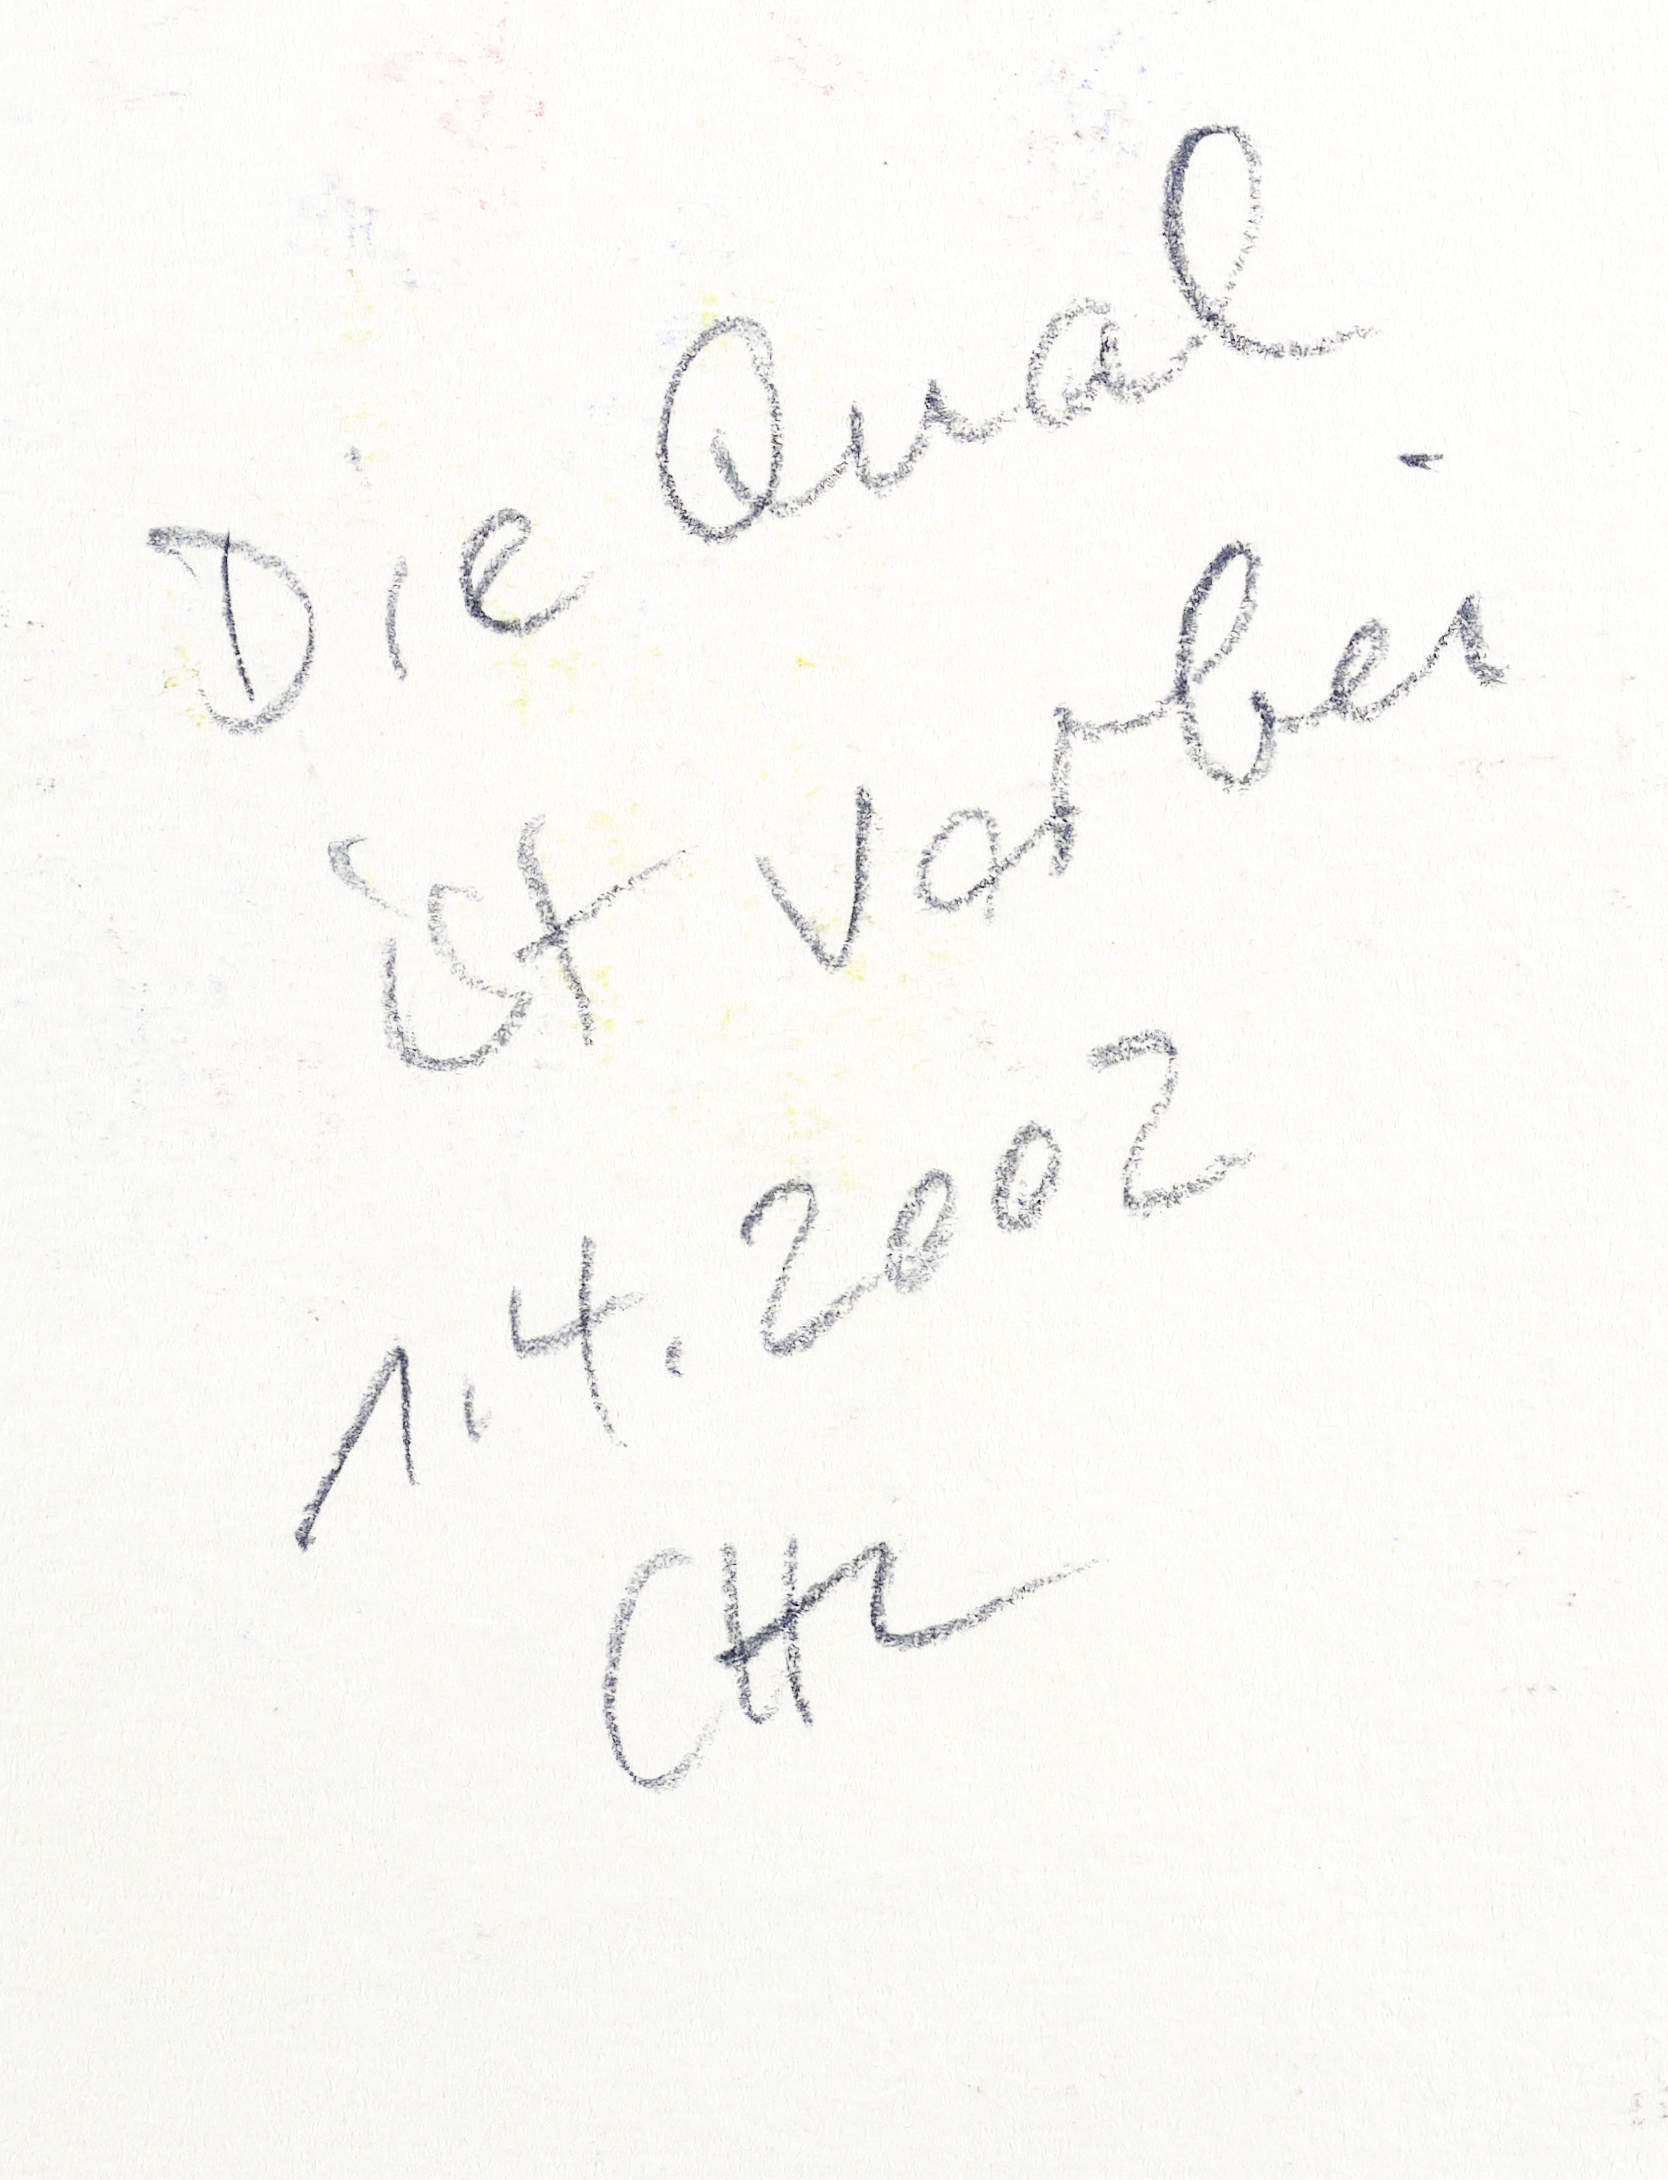 Die Qual
ist vorbei
1.4.2002